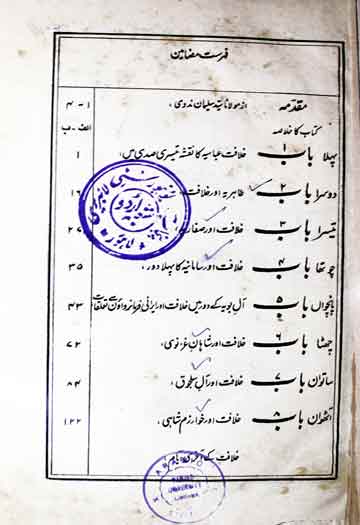 فہرست مضامین
مقدمہ از مولانا سید سلیمان ندوی، ۱-۴
کتاب کا خلاصہ الف-ب
پہلا باب ۱ خلافت عباسیہ کا نقشہ تیسری صدی میں، ۱
دوسرا باب ۲ طاہریہ اور خلافت ۱۶
تیسرا باب ۳ خلافت اور صفاریہ ۲۷
چوتھا باب ۴ خلافت اور سامانیہ کا پہلا دور، ۳۵
پانچواں باب ۵ آل بویہ کے دور میں خلافت اور ایرانی فرمانرواؤں سے تعلقات ۴۳
چھٹا باب ۶ خلافت اور شاہان غزنوی، ۷۲
ساتواں باب ۷ خلافت اور آل سلجوق، ۸۴
آٹھواں باب ۸ خلافت اور خوارزم شاہی، ۱۲۲
خلافت کے آخری ایام
شعبہ اردو
لاہور
PANJAB
UNIVERSITY
LAHORE